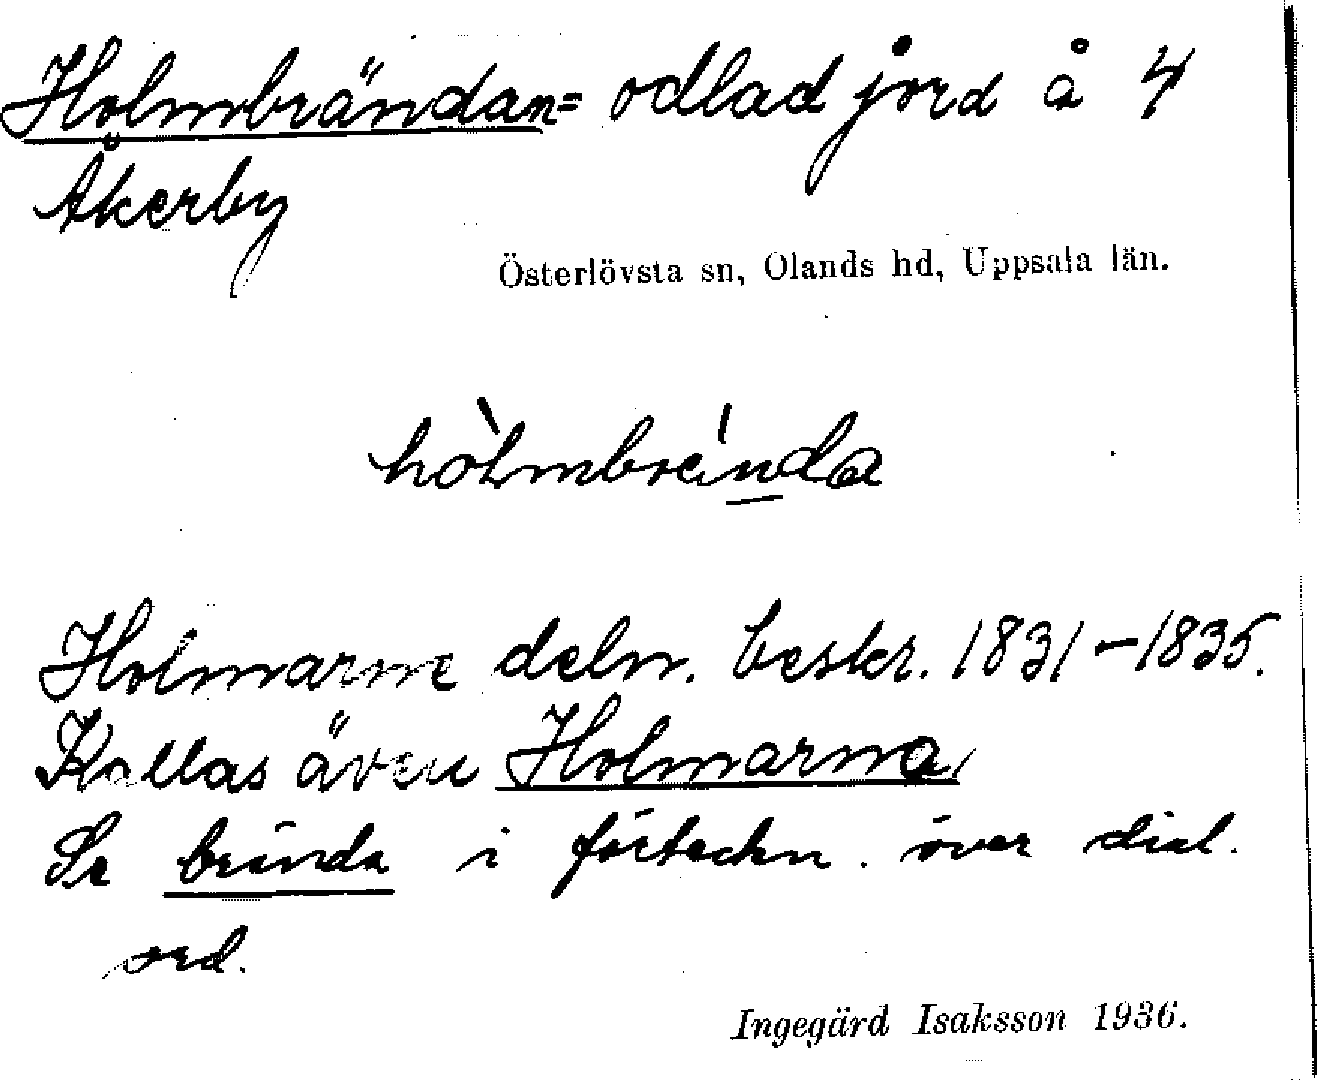 Holmbrändan = odlad jord å 4
Åkerby
Österlövsta sn, Olands hd, Uppsala län.
hòlmbrénda
Holmarne deln. beskr. 1831–1835.
Kallas även Holmarna
Se brända i förteckn. över dial.
ord.
Ingegärd Isaksson 1936.